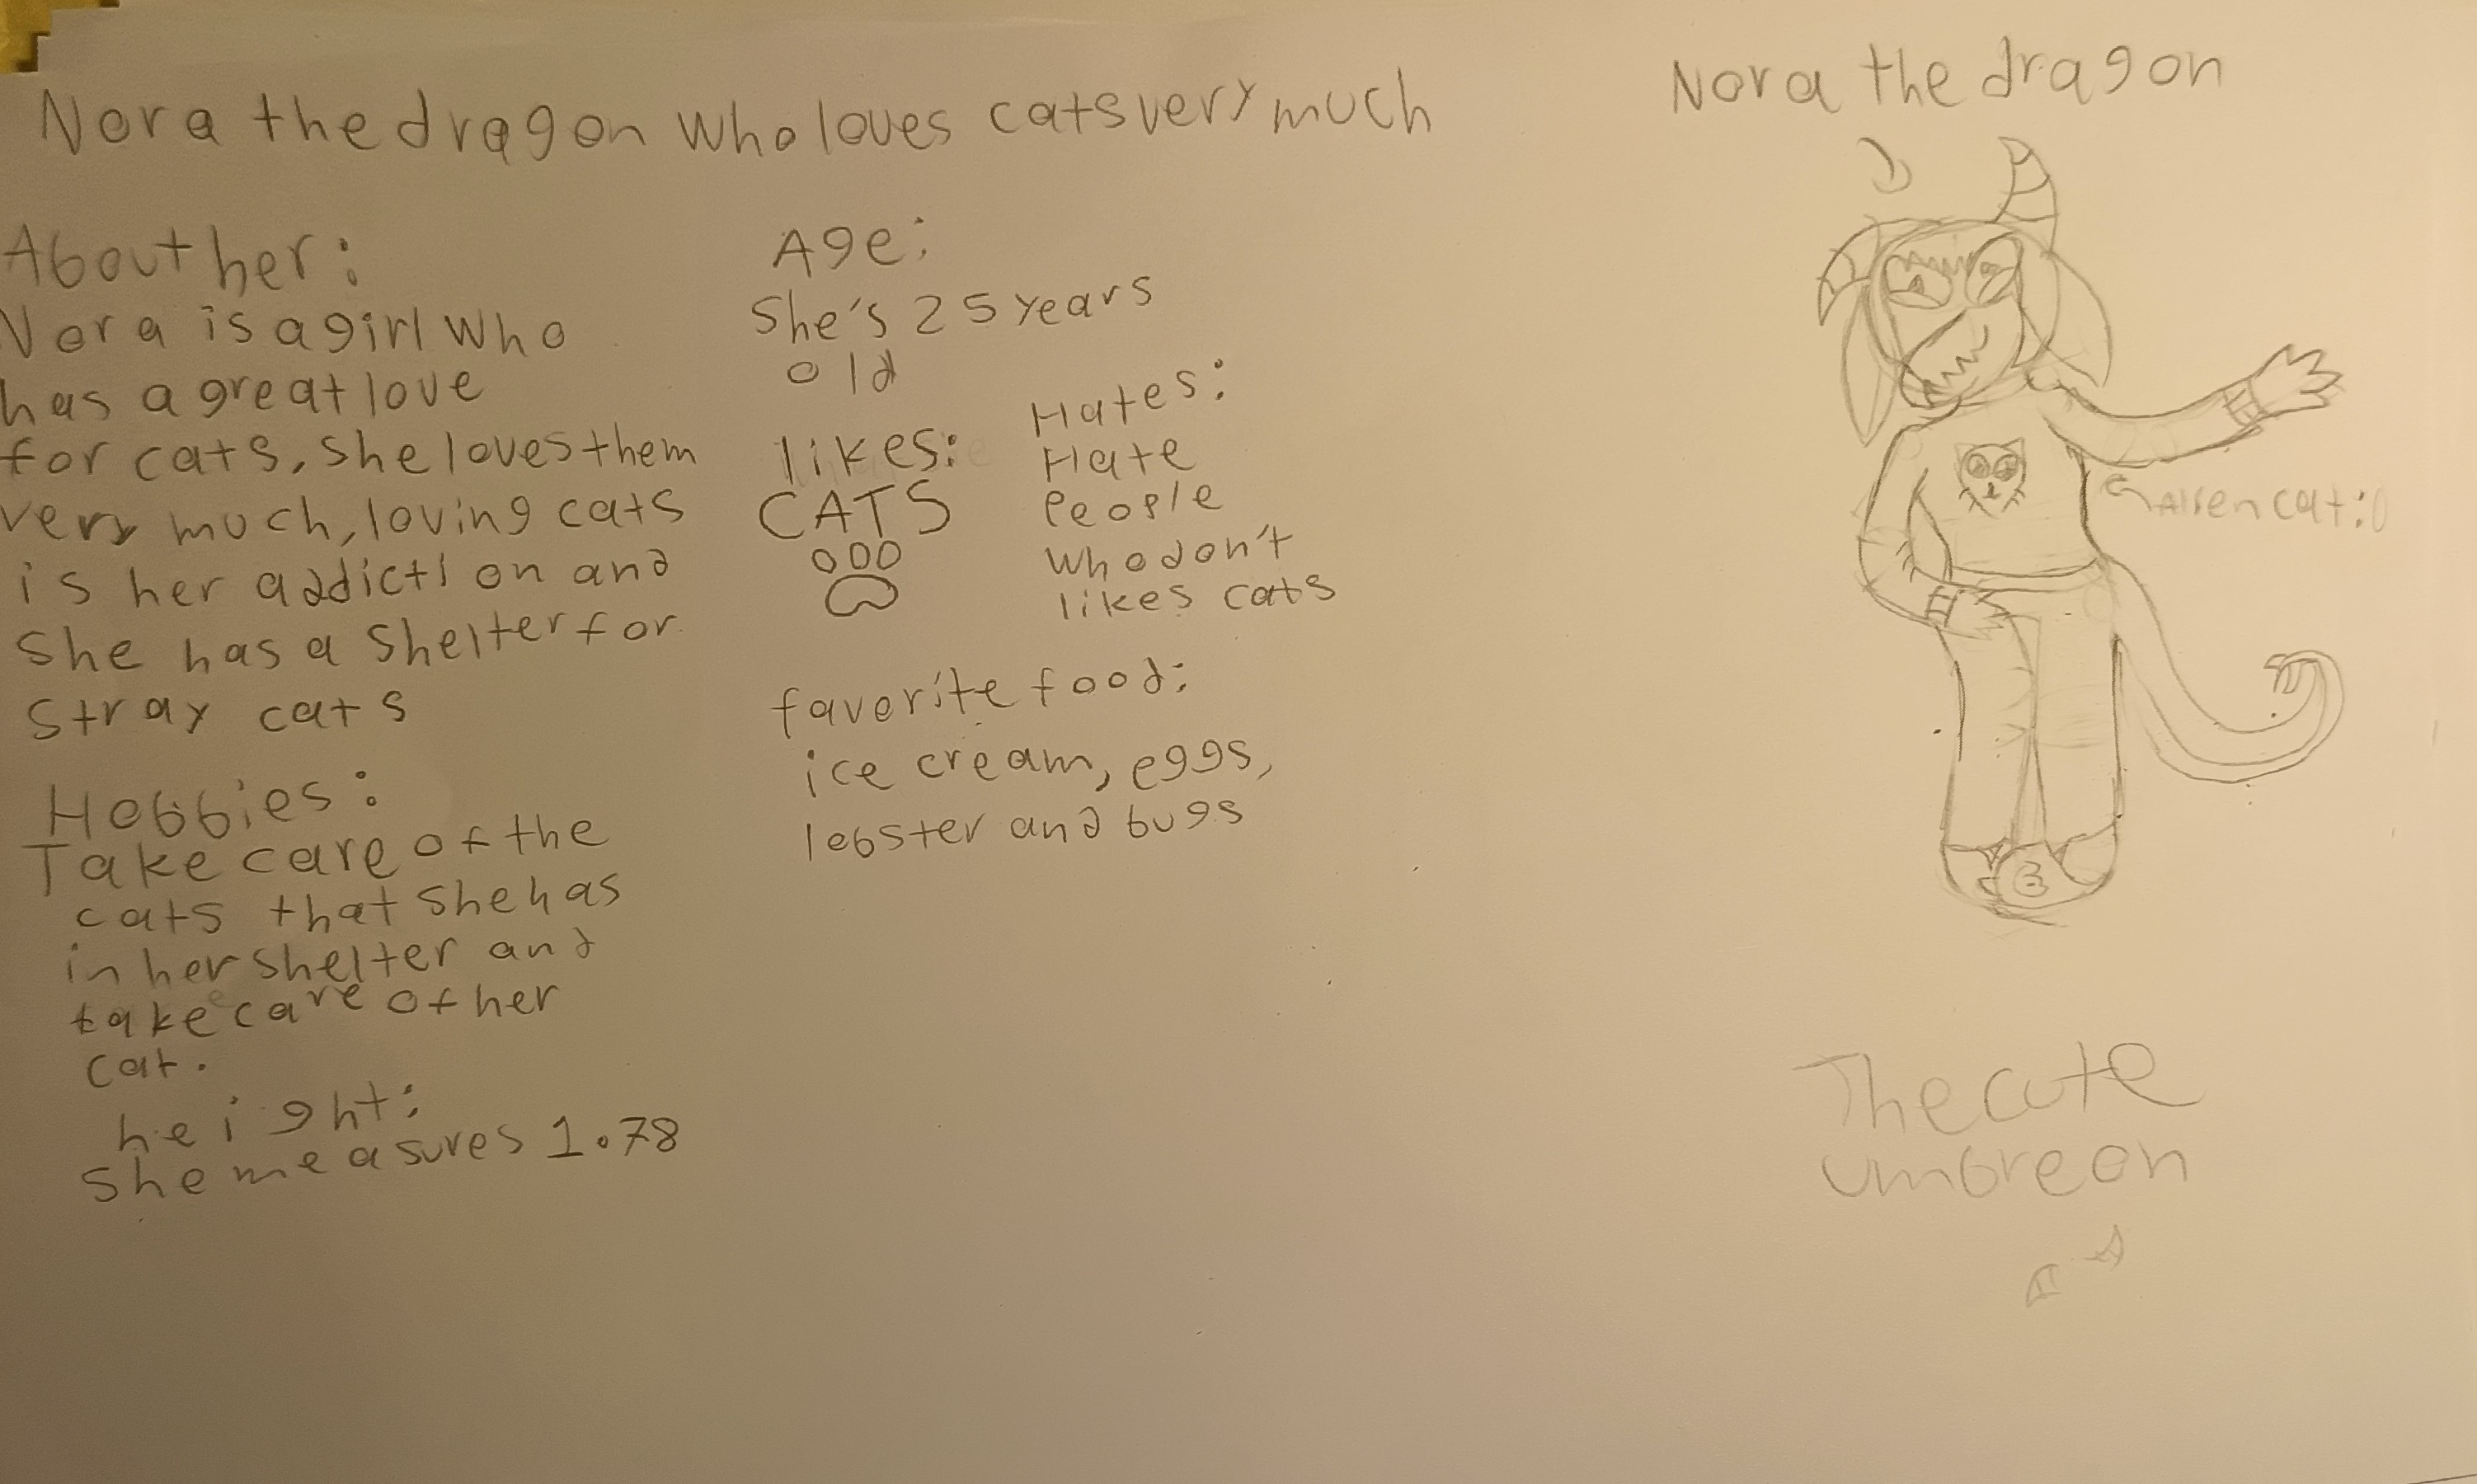 Nora the dragon who loves cats very much
About her:
Nora is a girl who
has a great love
for cats, she loves them
very much, loving cats
is her addiction and
she has a shelter for
stray cats
Hobbies:
Take care of the
cats that she has
in her shelter and
take care of her
cat.
height:
she measures 1.78
Age:
She's 25 years
old
likes:
CATS
Hates:
Hate
People
who don't
likes cats
favorite food:
ice cream, eggs,
lobster and bugs
Nora the dragon
Alien cat:0
The cute
umbreon